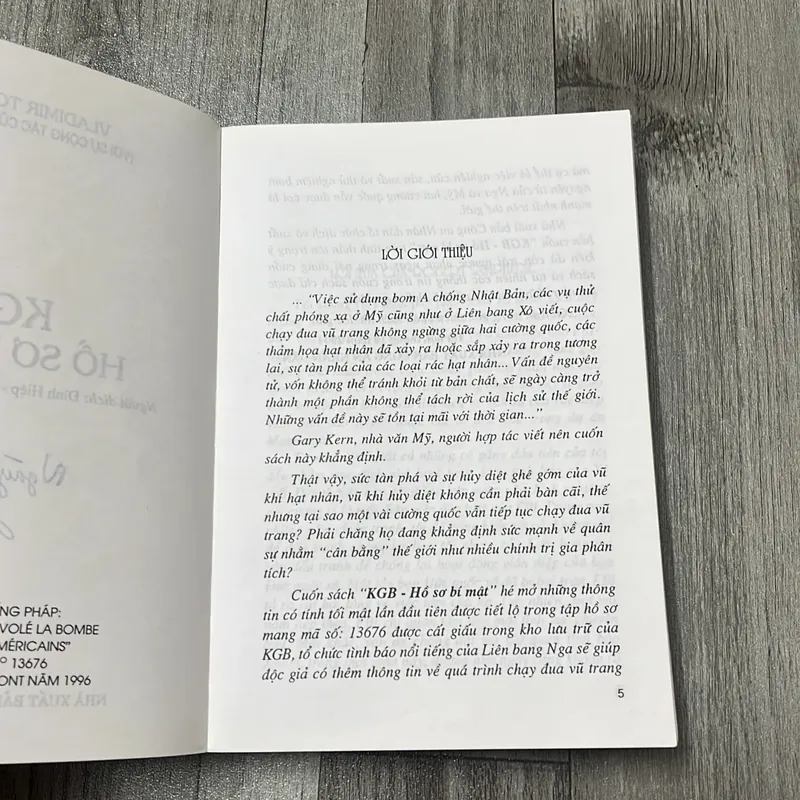 NG PHÁP:
VOLÉ LA BOMBE
MÉRICAINS"
° 13676
ONT NĂM 1996
LỜI GIỚI THIỆU
... "Việc sử dụng bom A chống Nhật Bản, các vụ thử
chất phóng xạ ở Mỹ cũng như ở Liên bang Xô viết, cuộc
chạy đua vũ trang không ngừng giữa hai cường quốc, các
thảm họa hạt nhân đã xảy ra hoặc sắp xảy ra trong tương
lai, sự tàn phá của các loại rác hạt nhân... Vấn đề nguyên
tử, vốn không thể tránh khỏi từ bản chất, sẽ ngày càng trở
thành một phần không thể tách rời của lịch sử thế giới.
Những vấn đề này sẽ tồn tại mãi với thời gian..."
Gary Kern, nhà văn Mỹ, người hợp tác viết nên cuốn
sách này khẳng định.
Thật vậy, sức tàn phá và sự hủy diệt ghê gớm của vũ
khí hạt nhân, vũ khí hủy diệt không cần phải bàn cãi, thế
nhưng tại sao một vài cường quốc vẫn tiếp tục chạy đua vũ
trang? Phải chăng họ đang khẳng định sức mạnh về quân
sự nhằm "cân bằng" thế giới như nhiều chính trị gia phân
tích?
Cuốn sách "KGB - Hồ sơ bí mật" hé mở những thông
tin có tính tối mật lần đầu tiên được tiết lộ trong tập hồ sơ
mang mã số: 13676 được cất giấu trong kho lưu trữ của
KGB, tổ chức tình báo nổi tiếng của Liên bang Nga sẽ giúp
độc giả có thêm thông tin về quá trình chạy đua vũ trang
5